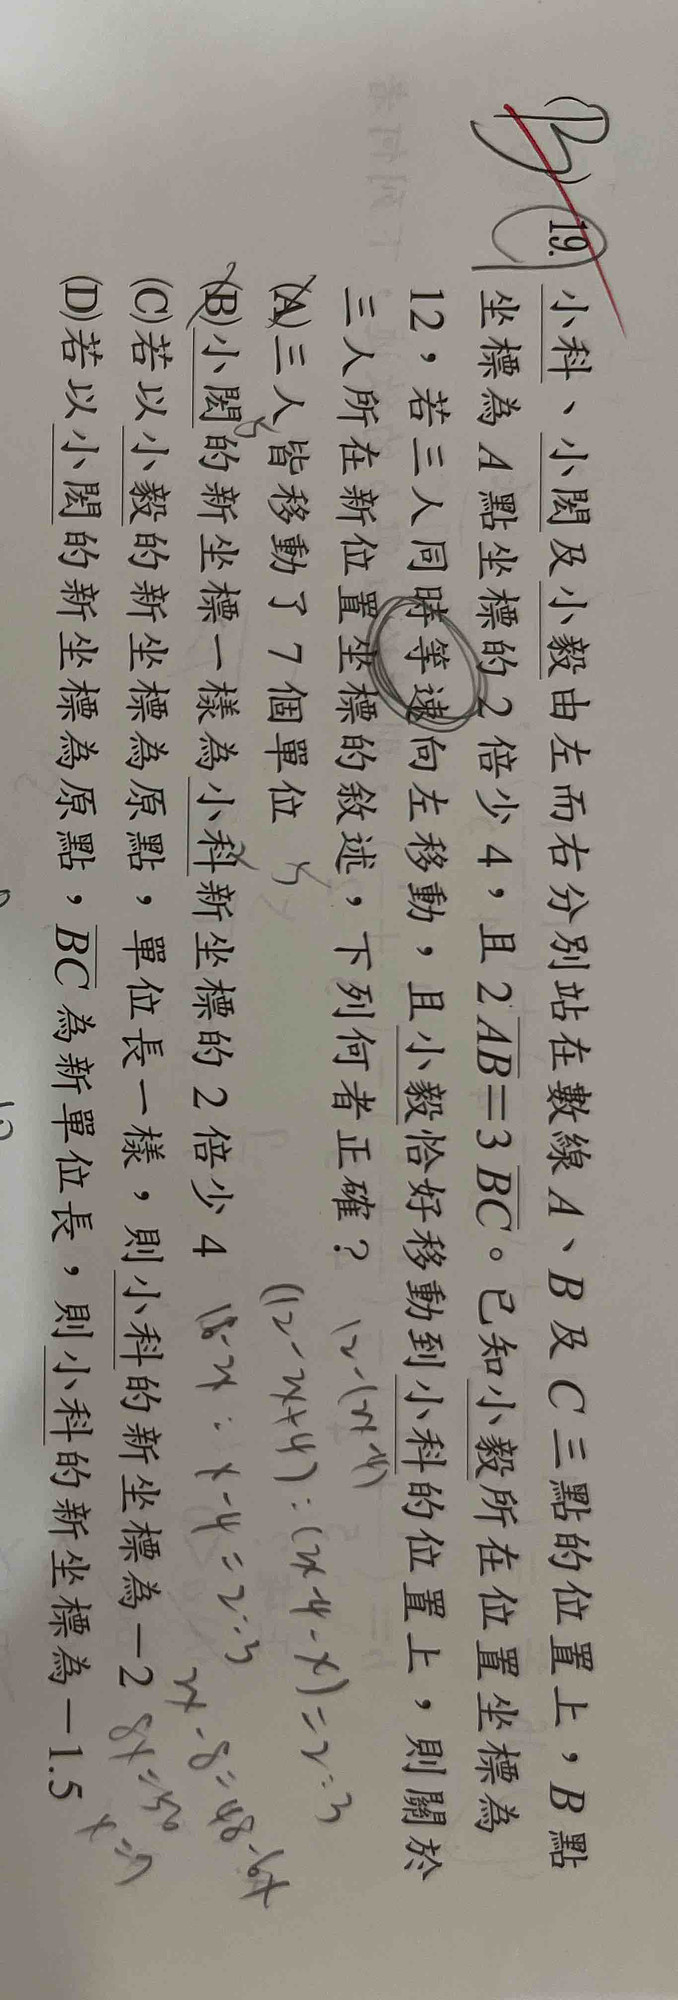 19. 小科、小閎及小毅由左而右分別站在數線 A、B 及 C 三點的位置上，B 點
坐標為 A 點坐標的 2 倍少 4，且 2AB＝3BC。已知小毅所在位置坐標為
12，若三人同時等速向左移動，且小毅恰好移動到小科的位置上，則關於
三人所在新位置坐標的敘述，下列何者正確？
12-(2x-4)
(A)三人皆移動了 7 個單位
(12-2x+4):(2x-4-x)=2:3
(B)小閎的新坐標一樣為小科新坐標的 2 倍少 4
16-2x:x-4=2:3
(C)若以小毅的新坐標為原點，單位長一樣，則小科的新坐標為－2
2x-8=48-6x
8x=56
x=7
(D)若以小閎的新坐標為原點，BC 為新單位長，則小科的新坐標為－1.5